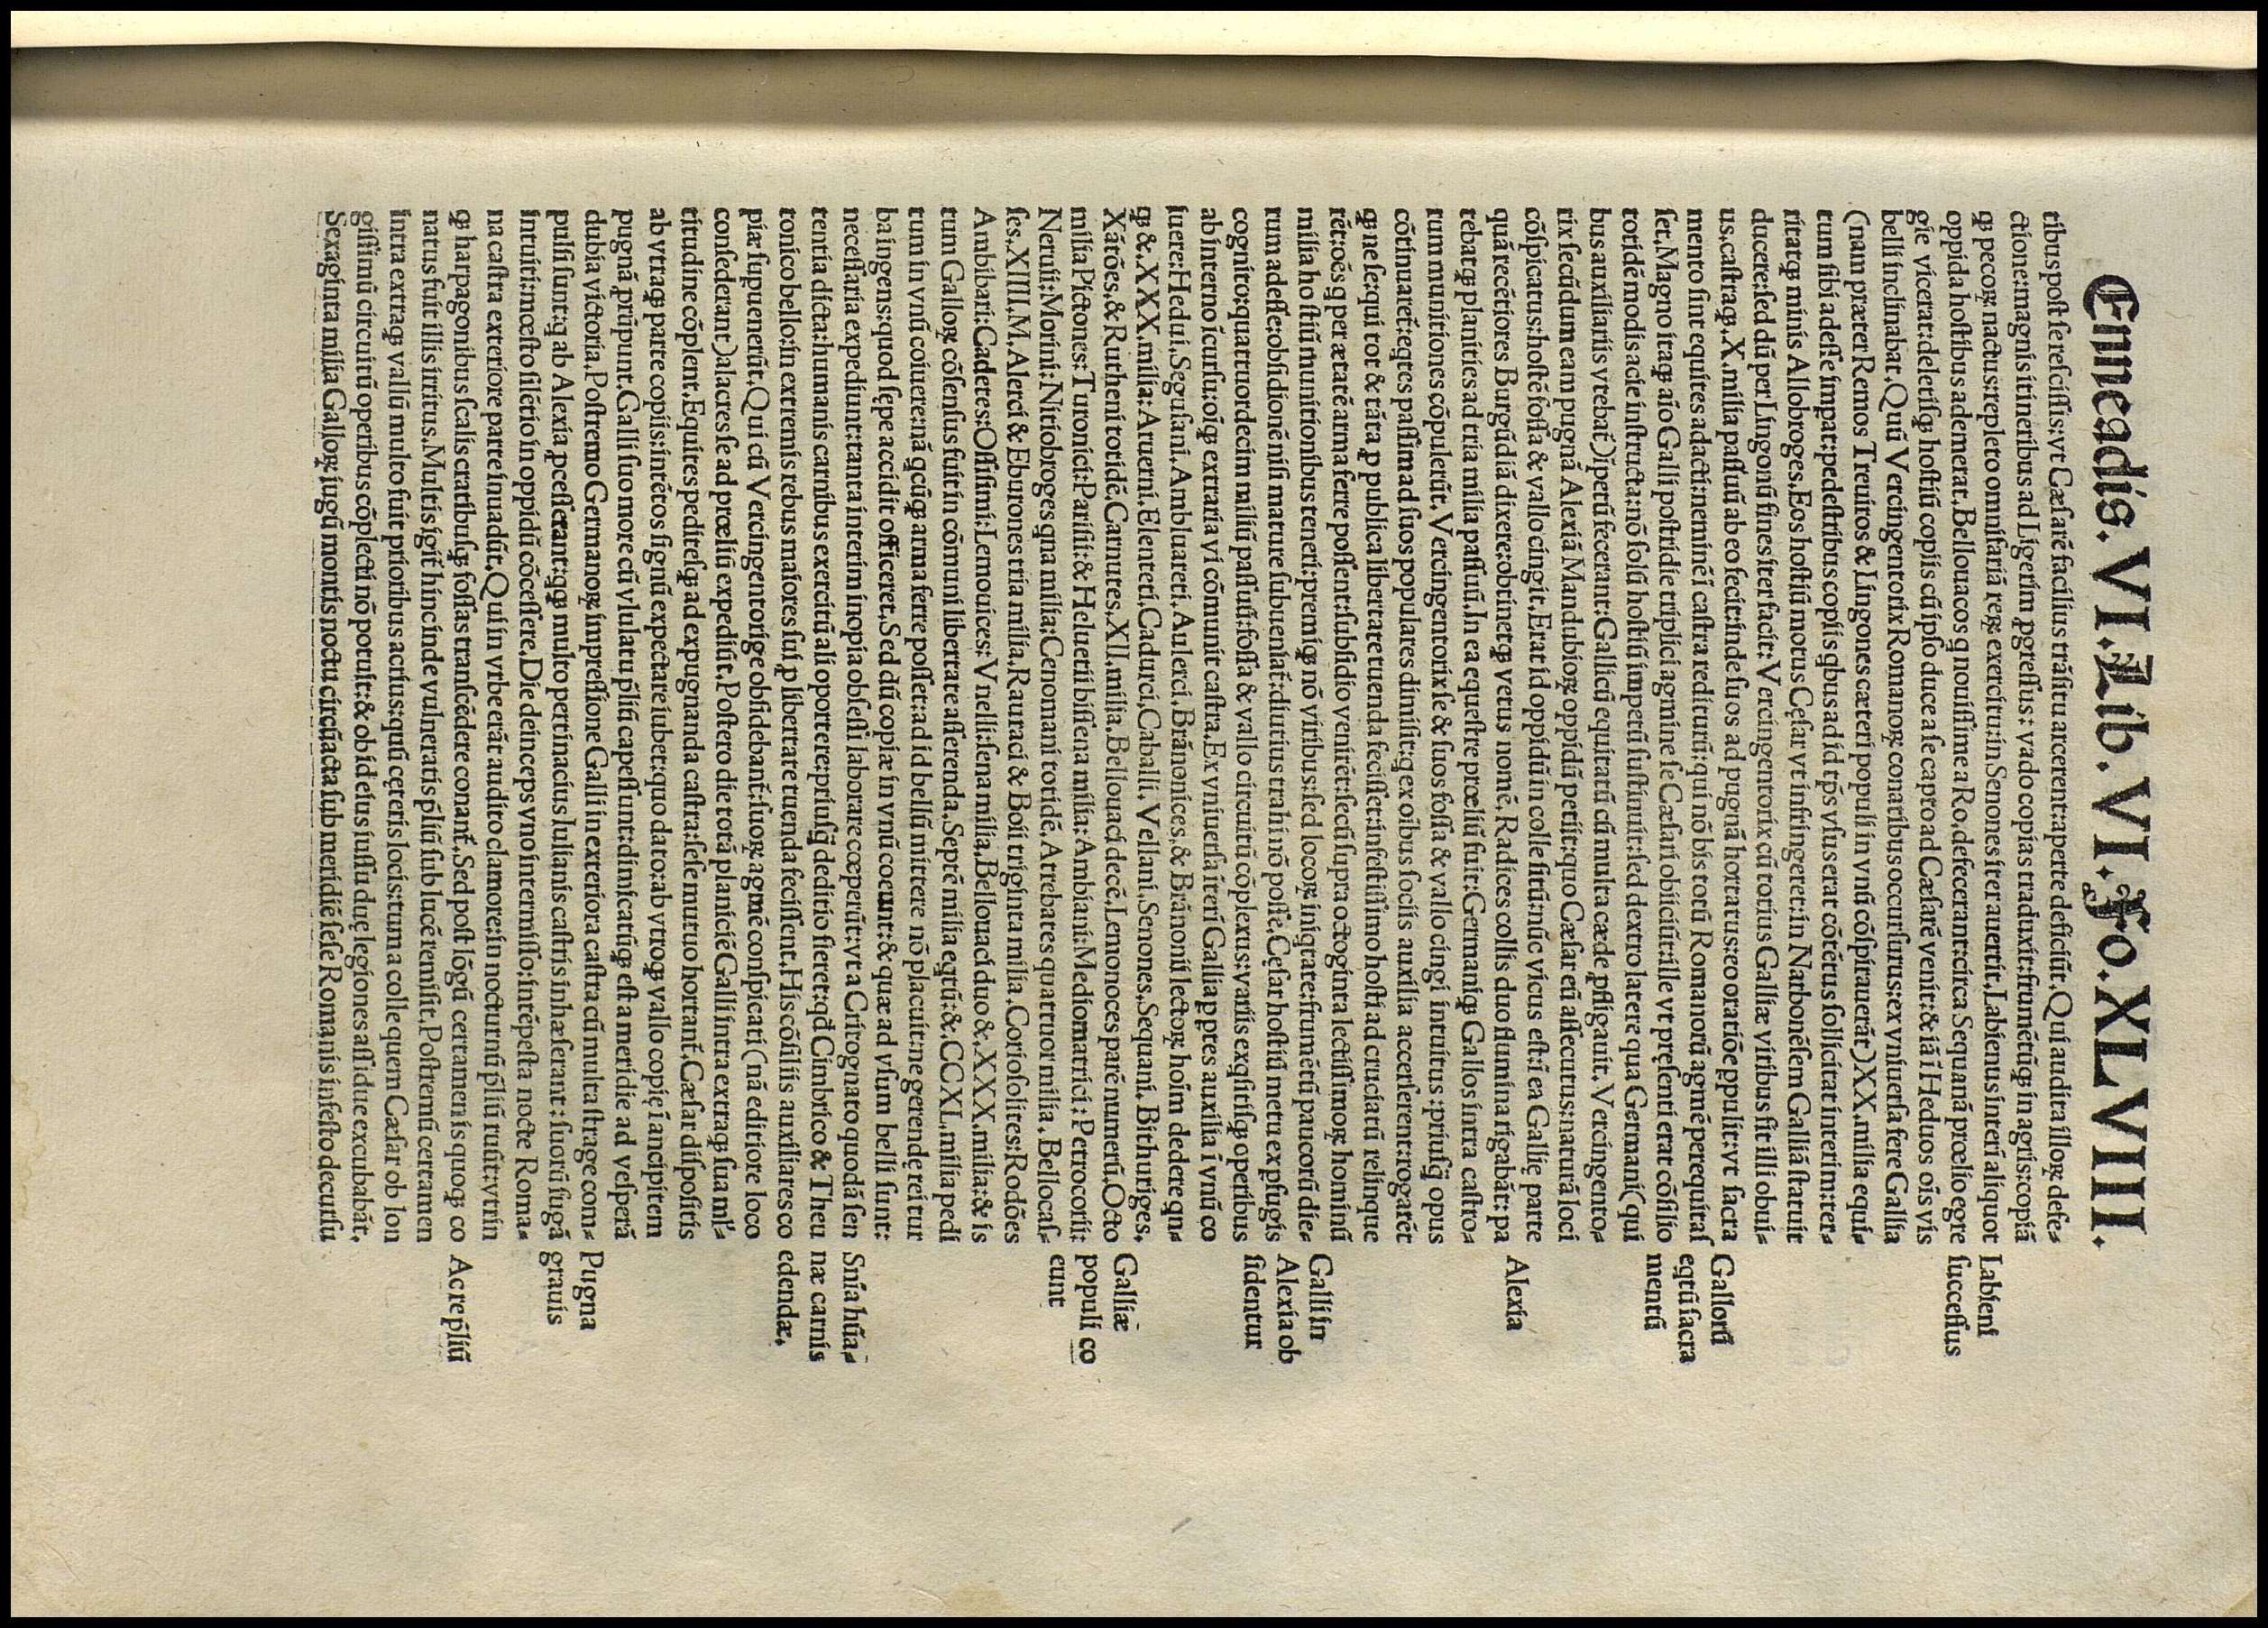 Enneadis. VI. Lib. VI. Fo. XLVIII.
tibus post se rescissis: vt Cæsarē facilius trāsitu arcerent: aperte deficiūt. Qui audita illoꝝ defe⸗
ctione: magnis itineribus ad Ligerim ꝓgressus: vado copias traduxit: frumētūqꝫ in agris: copiā
qꝫ pecoꝝ nactus: repleto omnifariā reꝝ exercitu: in Senones iter auertit. Labienus interi aliquot
Labieni
oppida hostibus ademerat. Bellouacos q nouissime a Ro. defecerant: circa Sequanā prœlio egre
successus
gie vicerat: deletisqꝫ hostiū copiis cū ipso duce a se capto ad Cæsarē venit: & iā ī Heduos oīs vis
belli inclinabat. Quū Vercingentorix Romanoꝝ conatibus occursurus: ex vniuersa fere Gallia
(nam præter Remos Treuiros & Lingones cæteri populi in vnū cōspirauerāt) XX. milia equi⸗
tum sibi adesse impat: pedestribus copiis qbus ad id tp̄s vsus erat cōtētus sollicitat interim: ter⸗
ritatqꝫ minis Allobroges. Eos hostiū motus Cęsar vt infringeret: in Narbonēsem Galliā statuit
ducere: sed dū per Lingonū fines iter facit: Vercingentorix cū totius Galliæ viribus fit illi obui⸗
us. castraqꝫ. X. milia passuū ab eo fecit: inde suos ad pugnā hortatus: eo oratiōe ꝓpulit: vt sacra
Gallorū
mento sint equites adacti: neminē ī castra rediturū: qui nō bis totū Romanorū agmē perequitas
eqtū sacra
set. Magno itaqꝫ aīo Galli postridie triplici agmine se Cæsari obiiciūt: ille vt pręsenti erat cōsilio
mentū
totidē modis acie instructa: nō solū hostiū impetū sustinuit: sed dextro latere qua Germani (qui
bus auxiliariis vtebat̃) īpetū fecerant: Gallicū equitatū cū multa cæde ꝓfligauit. Vercingento⸗
rix secūdum eam pugnā Alexiā Mandubioꝝ oppidū petiit: quo Cæsar eū assecutus: naturā loci
cōspicatus: hostē fossa & vallo cingit. Erat id oppidū in colle sitū: nūc vicus est: ī ea Gallię parte
Alexia
quā recētiores Burgūdiā dixere: obtinetqꝫ vetus nomē. Radices collis duo flumina rigabāt: pa
tebatqꝫ planities ad tria milia passuū. In ea equestre prœliū fuit: Germaniqꝫ Gallos intra castro⸗
rum munitiones cōpulerūt. Vercingentorix se & suos fossa & vallo cingi intuitus: priusq̄ opus
cōtinuaret̃: eqtes passim ad suos populares dimisit: q ex oibus sociis auxilia accerserent: rogarēt
qꝫ ne se: qui tot & tāta ꝓ publica libertate tuenda fecisset: infestissimo hosti ad cruciatū relinque
rēt: oēs q per ætatē arma ferre possent: subsidio venirēt: secū supra octoginta lectissimoꝝ hominū
milia hostiū munitionibus teneri: premiqꝫ nō viribus: sed locoꝝ iniqtate: frumētū paucorū die⸗
Galli in
rum adesse: obsidionē nisi mature subueniat̃: diutius trahi nō posse. Cęsar hostiū metu ex ꝓfugis
Alexia ob
cognito: quattuordecim miliū passuū: fossa & vallo circuitū cōplexus: variis exqsitisqꝫ operibus
sidentur
ab interno īcursu: oīqꝫ extraria vi cōmunit castra. Ex vniuersa īteri Gallia ꝓ ptes auxilia ī vnū co
iuere: Hedui. Segusani. Ambluareti. Aulerci. Brānonices. & Brānonii lectoꝝ hoīm dedere qn⸗
qꝫ &. XXX. milia: Aruerni. Elenteti. Cadurci. Caballi. Vellani. Senones. Sequani. Bithuriges.
Xātōes. & Rutheni totidē. Carnutes. XII. milia. Bellouaci decē. Lemonoces parē numerū. Octo
Galliæ
milia Pictones: Turonici: Parisii: & Heluetii bissena milia: Ambiani: Mediomatrici: Petrocorii:
populi co
Neruii: Morini: Nitiobroges qna milia: Cenomani totidē. Artebates quattuor milia. Bellocas⸗
eunt
ses. XIIII. M. Alerci & Eburones tria milia. Rauraci & Boii triginta milia. Coriosolites: Rodōes
Ambibari: Cadetes: Ossismi: Lemouices: Vnelli: sena milia. Bellouaci duo &. XXX. milia: & is
tum Galloꝝ cōsensus fuit in cōmuni libertate asserenda. Septē milia eqtū: &. CCXL. milia pedi
tum in vnū coiuere: nā qcūqꝫ arma ferre posset: ad id bellū mittere nō placuit: ne gerendę rei tur
ba ingens: quod sępe accidit officeret. Sed dū copiæ in vnū coeunt: & quæ ad vsum belli sunt:
necessaria expediunt: tanta interim inopia obsessi laborare cœperūt: vt a Critognato quodā sen
Snīa hūa⸗
tentia dicta: humanis carnibus exercitū ali oportere: priusq̄ deditio fieret: qd̄ Cimbrico & Theu
næ carnis
tonico bello: in extremis rebus maiores sui ꝓ libertate tuenda fecissent. His cōsiliis auxiliares co
edendæ.
piæ supuenerūt. Qui cū Vercingentorige obsidebant̃: suoꝝ agmē conspicati (nā editiore loco
consederant) alacres se ad prœliū expediūt. Postero die totā planiciē Galli intra extraqꝫ sua ml̓⸗
titudine cōplent. Equites peditesqꝫ ad expugnanda castra: sese mutuo hortant̃. Cæsar dispositis
ab vtraqꝫ parte copiis: intētos signū expectare iubet: quo dato: ab vtroqꝫ vallo copię ī ancipitem
pugnā prūpunt. Galli suo more cū vlulatu p̄liū capessunt: dimicatūqꝫ est a meridie ad vesperā
dubia victoria. Postremo Germanoꝝ impressione Galli in exteriora castra cū multa strage com⸗
Pugna
pulsi sunt: q ab Alexia ꝓcesserant: qqꝫ multo pertinacius Iulianis castris inhæserant: suorū fugā
grauis
intuiti: mœsto silētio in oppidū cōcessere. Die deinceps vno intermisso: intēpesta nocte Roma⸗
na castra exteriore parte inuadūt. Qui in vrbe erāt audito clamore: in nocturnū p̄liū ruūt: vtrin
qꝫ harpagonibus scalis cratibusqꝫ fossas transcēdere conant̃. Sed post lōgū certamen is quoqꝫ co
Acre p̄liū
natus fuit illis irritus. Multis igit̃ hinc inde vulneratis p̄liū sub lucē remisit. Postremū certamen
intra extraqꝫ vallū multo fuit prioribus actius: quū cęteris locis: tum a colle quem Cæsar ob lon
gissimū circuitū operibus cōplecti nō potuit: & ob id eius iussu duę legiones assidue excubabāt.
Sexaginta milia Galloꝝ iugū montis noctu circūacta sub meridiē sese Romanis infesto decursu